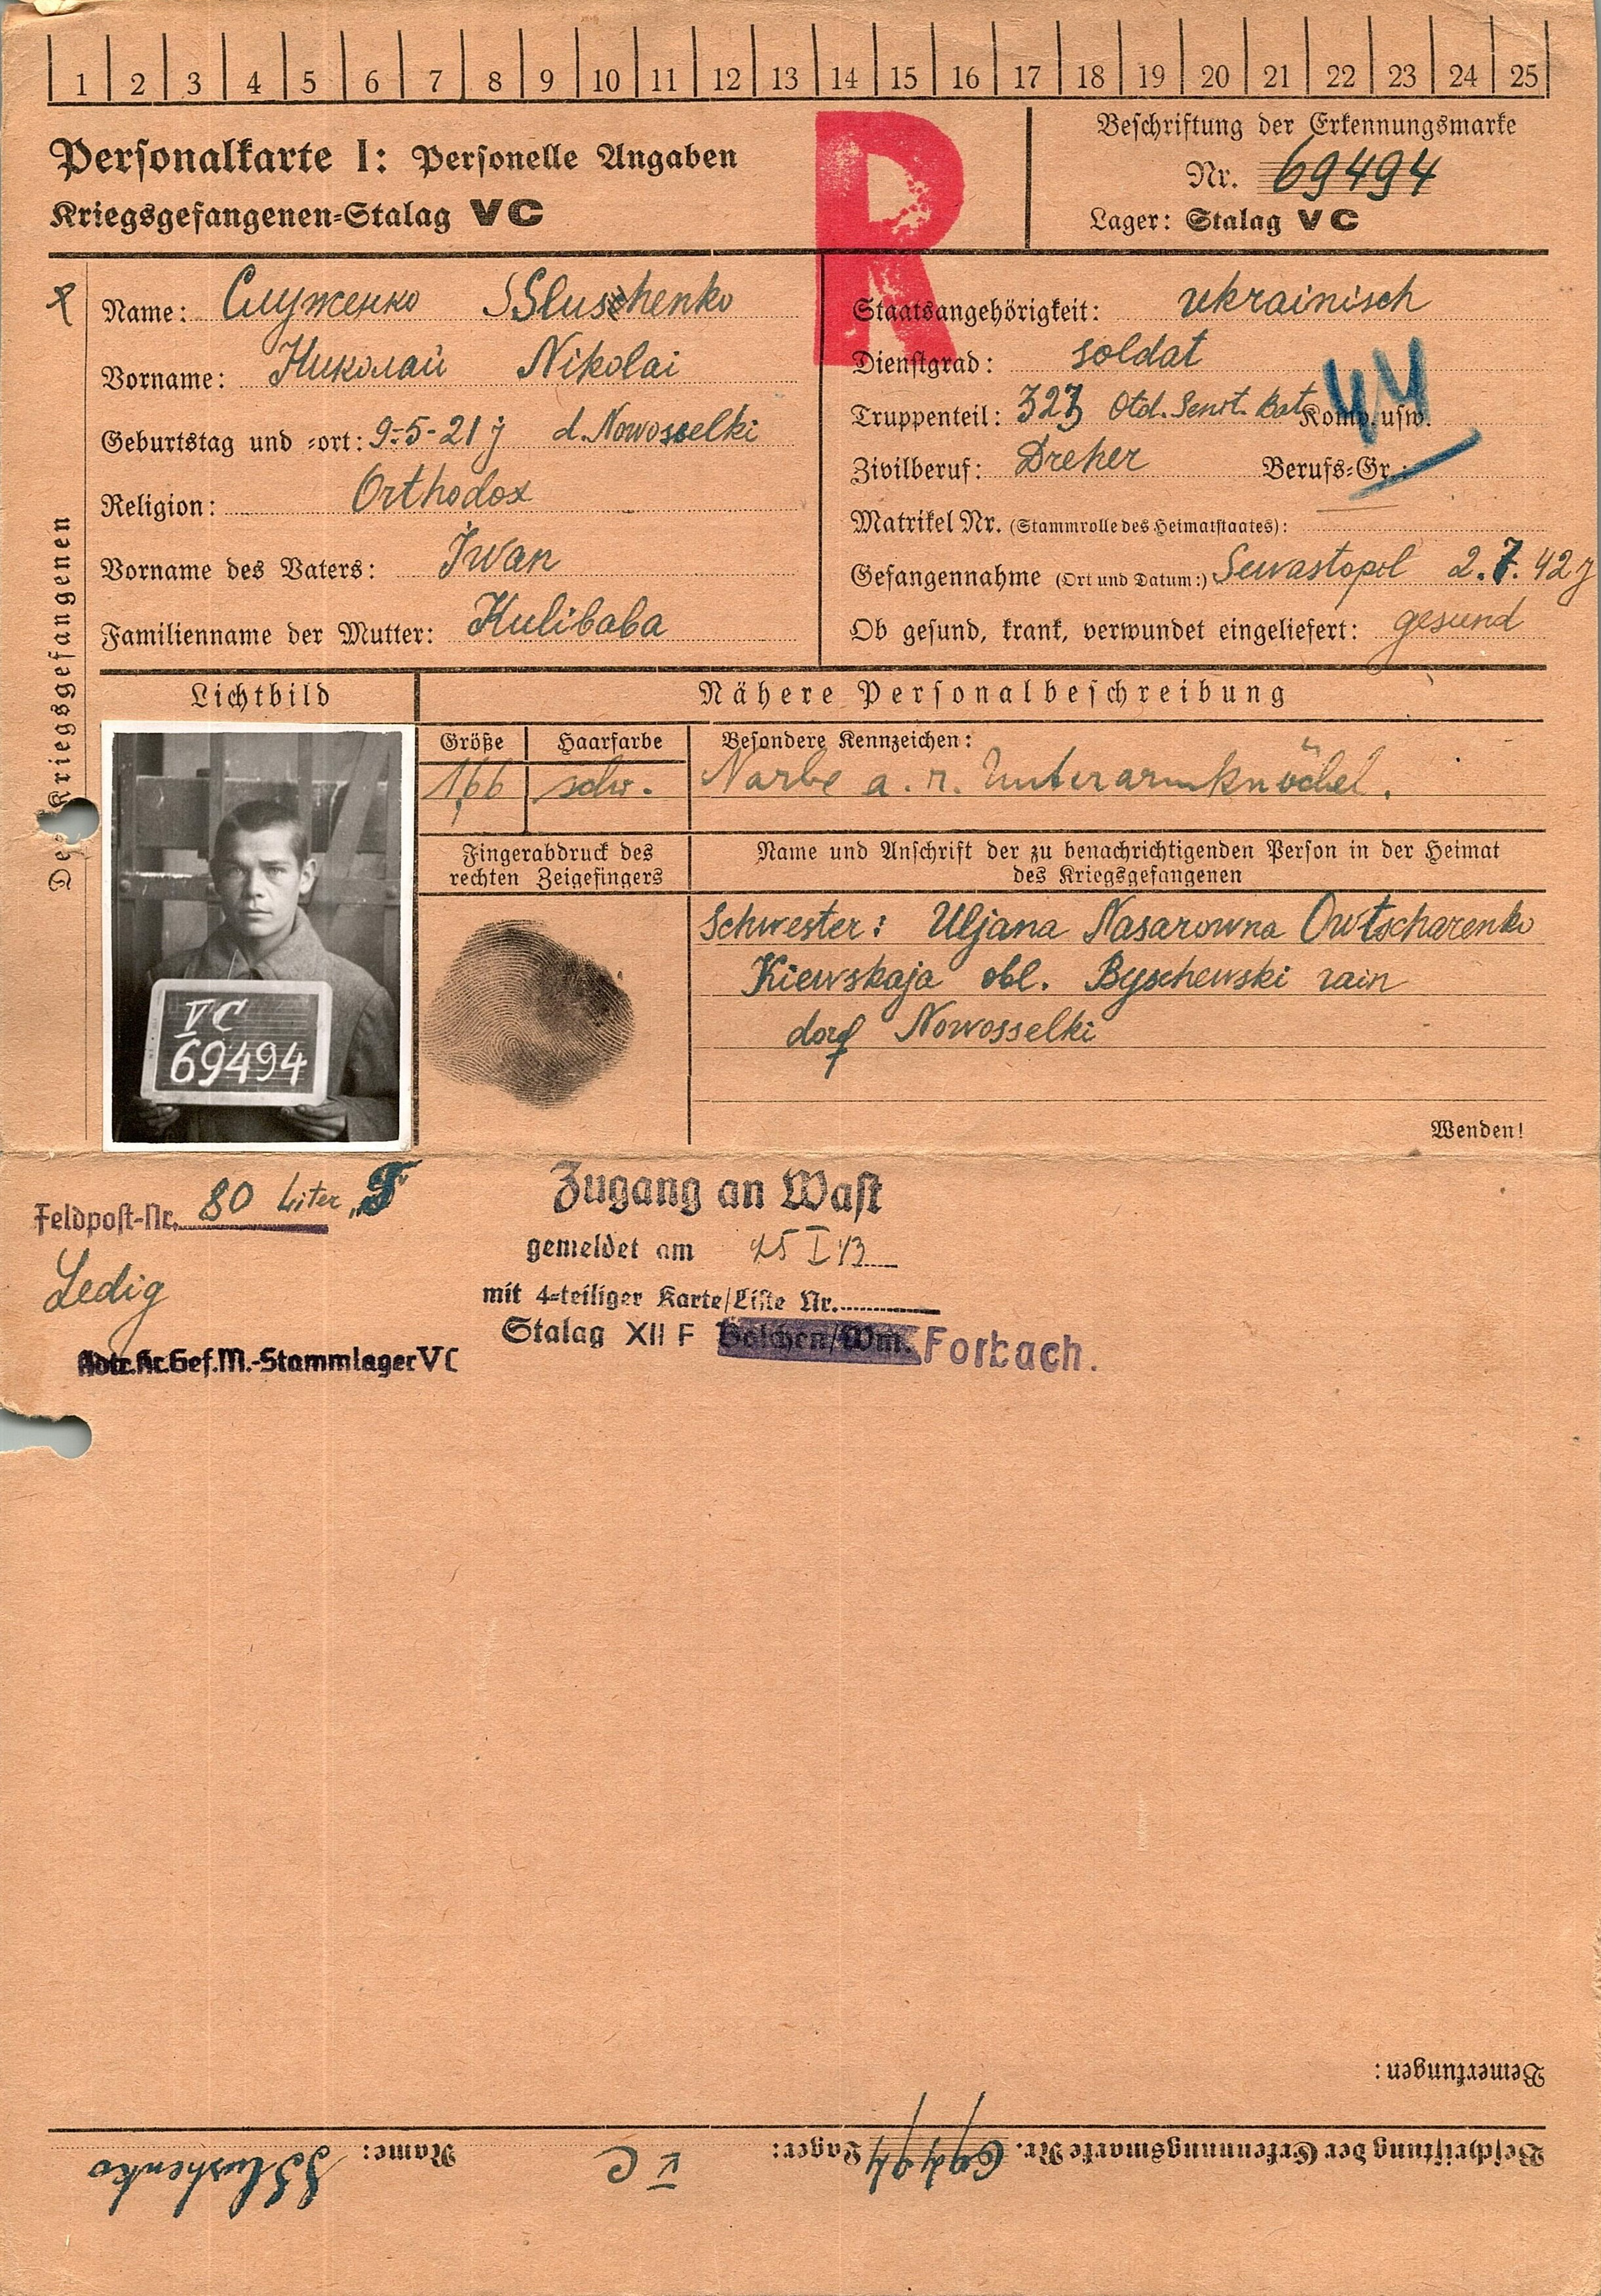 1 2 3 4 5 6 7 8 9 10 11 12 13 14 15 16 17 18 19 20 21 22 23 24 25
Personalkarte I: Personelle Angaben
Kriegsgefangenen-Stalag VC
R
Beschriftung der Erkennungsmarke
Nr. 69494
Lager: Stalag VC
Des Kriegsgefangenen
Name: Служенко Sluschenko
Vorname: Николай Nikolai
Geburtstag und -ort: 9-5-21 j d. Nowosselki
Religion: Orthodox
Vorname des Vaters: Iwan
Familienname der Mutter: Kulibaba
Staatsangehörigkeit: ukrainisch
Dienstgrad: soldat
Truppenteil: 323 Otd. Bat. Komp. usw. 44
Zivilberuf: Dreher Berufs-Gr.:
Matrikel Nr. (Stammrolle des Heimatstaates):
Gefangennahme (Ort und Datum:) Sewastopol 2.7.42 j
Ob gesund, krank, verwundet eingeliefert: gesund
Lichtbild
Nähere Personalbeschreibung
Größe Haarfarbe Besondere Kennzeichen:
1,66 schw. Narbe a. r. Unterarmknöchel.
Fingerabdruck des
rechten Zeigefingers
Name und Anschrift der zu benachrichtigenden Person in der Heimat
des Kriegsgefangenen
Schwester: Uljana Nasarowna Owtscharenko
Kiewskaja obl. Byschewski rain
dorf Nowosselki
VC
69494
Wenden!
Feldpost-Nr. 80 Liter „F"
Ledig
Kr.Gef.M.-Stammlager VC
Zugang an Wast
gemeldet am 15 I 43
mit 4-teiliger Karte/Liste Nr.
Stalag XII F Bolchen/Wm. Forbach.
Bemerkungen:
Beschriftung der Erkennungsmarke Nr. 69494 Lager: VC Name: Slushenko